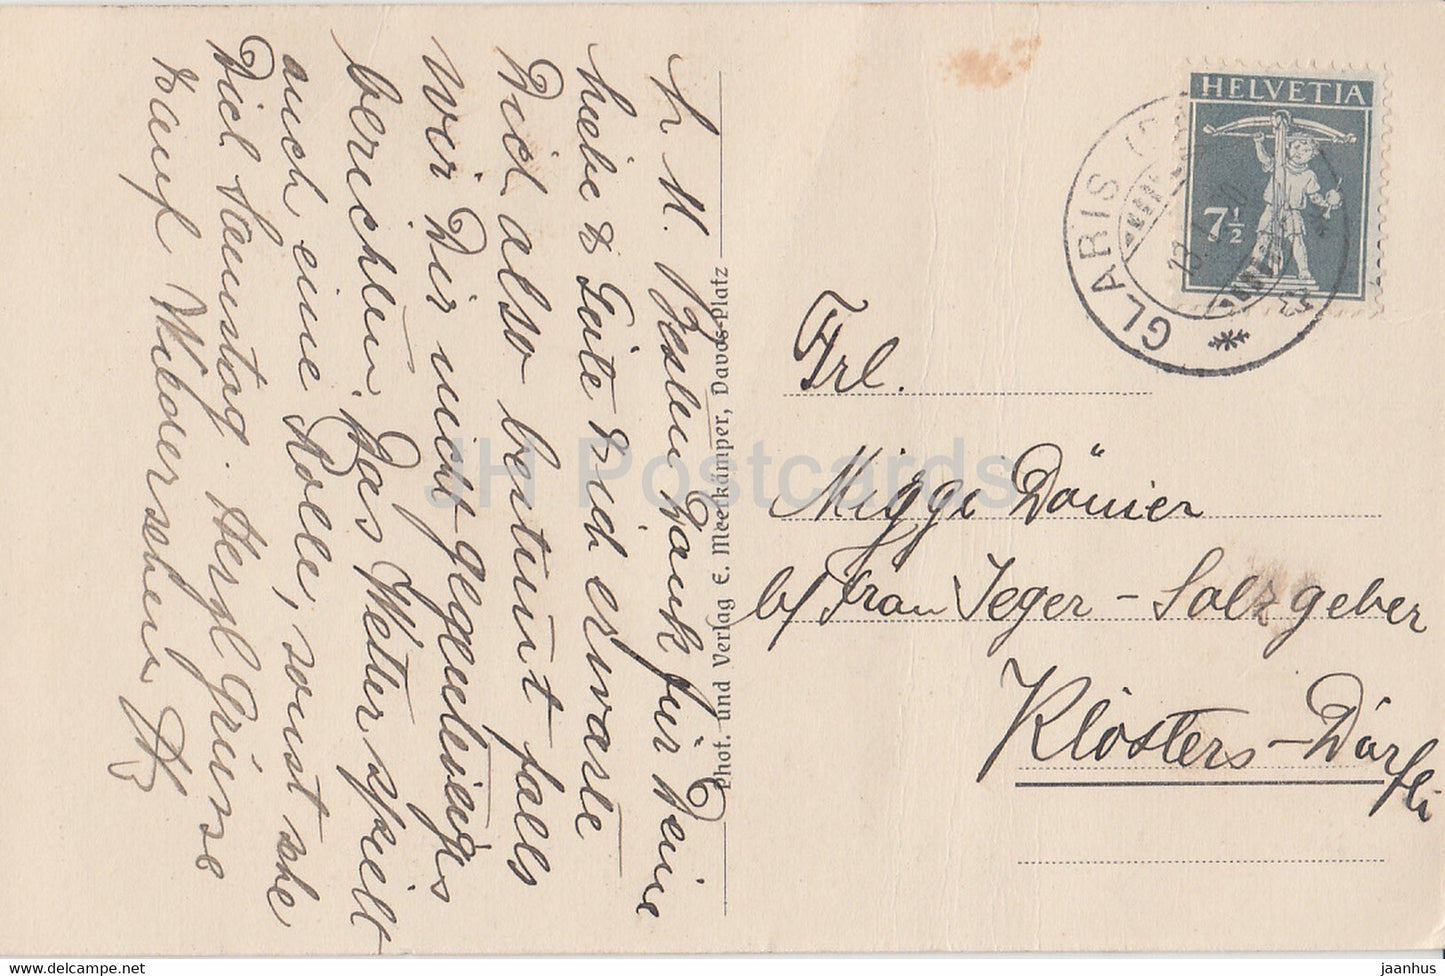 L. M. Besten Dank für Deine
liebe & Güte Dich erwarte
Dich also bestimt falls
wir Dir nicht gegenteiliges
berichten. Das Wetter spielt
auch eine Rolle, sonst sehe
Dich Samstag. Herzl. Grüsse
& auf Wiedersehen
Phot. und Verlag E. Meerkämper, Davos-Platz
HELVETIA
7½
GLARIS
Frl.
Miggi Dönier
b/ Frau Jeger-Salzgeber
Klosters-Dörfli
JH Postcards
jaanhus.com